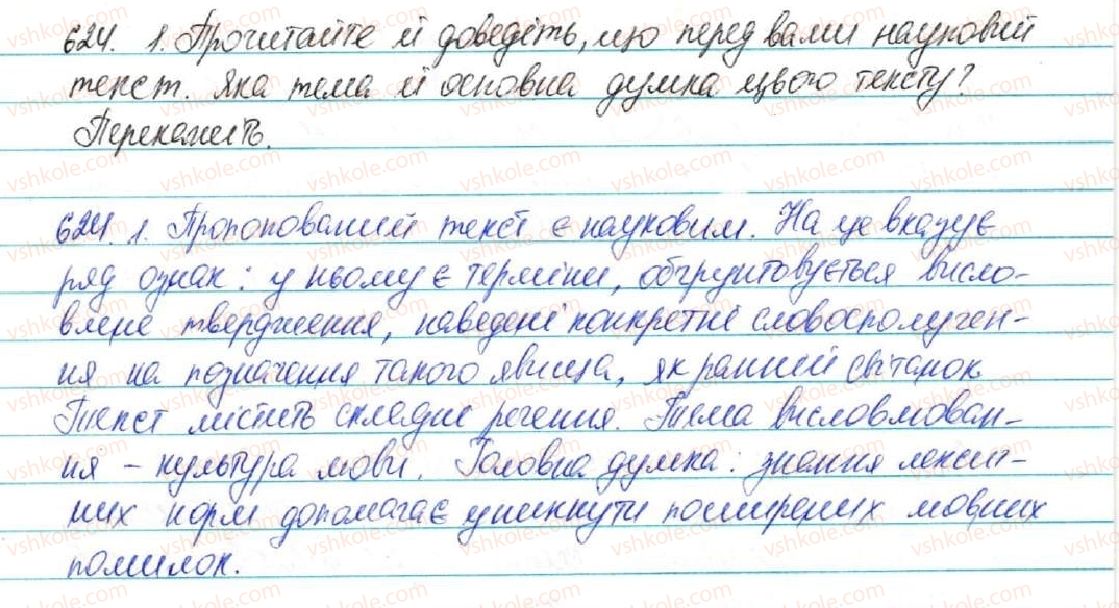 624. 1. Прочитайте й доведіть, що перед вами науковий
текст. Яка тема й основна думка цього тексту?
Перекажіть.
624. 1. Пропонований текст є науковим. На це вказує
ряд ознак: у ньому є терміни, обгрунтовується висло-
влене твердження, наведені конкретні словосполучен-
ня на позначення такого явища, як ранній світанок.
Текст містить складні речення. Тема висловлюван-
ня – культура мови. Головна думка: знання лексич-
них норм допомагає уникнути поширених мовних
помилок.
vshkole.com